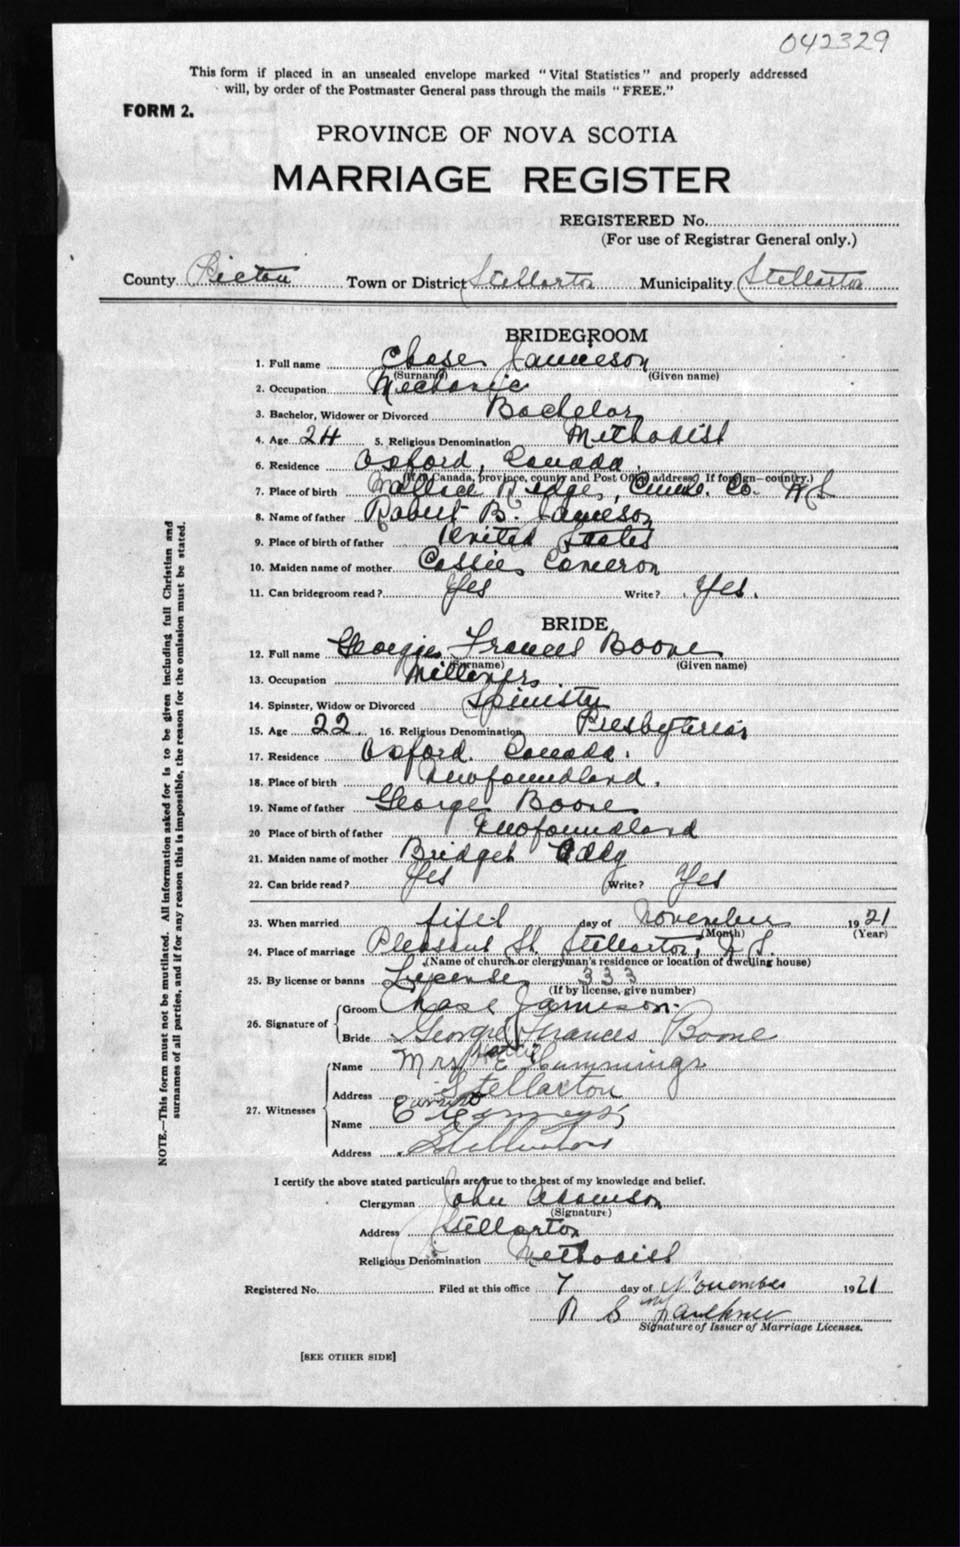 042329
This form if placed in an unsealed envelope marked "Vital Statistics" and properly addressed
will, by order of the Postmaster General pass through the mails "FREE."
FORM 2.
PROVINCE OF NOVA SCOTIA
MARRIAGE REGISTER
REGISTERED No.
(For use of Registrar General only.)
County Pictou Town or District Stellarton Municipality Stellarton
BRIDEGROOM
1. Full name Chase Jamieson
(Surname) (Given name)
2. Occupation Mechanic
3. Bachelor, Widower or Divorced Bachelor
4. Age 24 5. Religious Denomination Methodist
6. Residence Oxford, Canada.
(If in Canada, province, county and Post Office address? If foreign—country.)
7. Place of birth Wallace Ridge, Cumb. Co. N S
8. Name of father Robert B. Jameson
9. Place of birth of father United States
10. Maiden name of mother Cassie Cameron
11. Can bridegroom read? Yes Write? Yes.
BRIDE
12. Full name Georgie Frances Boone
(Surname) (Given name)
13. Occupation Milliner
14. Spinster, Widow or Divorced Spinster
15. Age 22 16. Religious Denomination Presbyterian
17. Residence Oxford. Canada.
18. Place of birth Newfoundland.
19. Name of father George Boone
20 Place of birth of father Newfoundland
21. Maiden name of mother Bridget
22. Can bride read? Yes Write? Yes
23. When married day of November 1921
(Month) (Year)
24. Place of marriage Pleasant St. Stellarton, N S.
(Name of church or clergyman's residence or location of dwelling house)
25. By license or banns License 333
(If by license, give number)
26. Signature of Groom Chase Jameson.
Bride Georgie Frances Boone
27. Witnesses Name Mrs E Hummings
Address Stellarton
Name
Address Stellarton
I certify the above stated particulars are true to the best of my knowledge and belief.
Clergyman John Adamson
(Signature)
Address Stellarton
Religious Denomination Methodist
Registered No. Filed at this office 7 day of November 1921
Faulkner
Signature of Issuer of Marriage Licenses.
[SEE OTHER SIDE]
NOTE.—This form must not be mutilated. All information asked for is to be given including full Christian and
surnames of all parties, and if for any reason this is impossible, the reason for the omission must be stated.